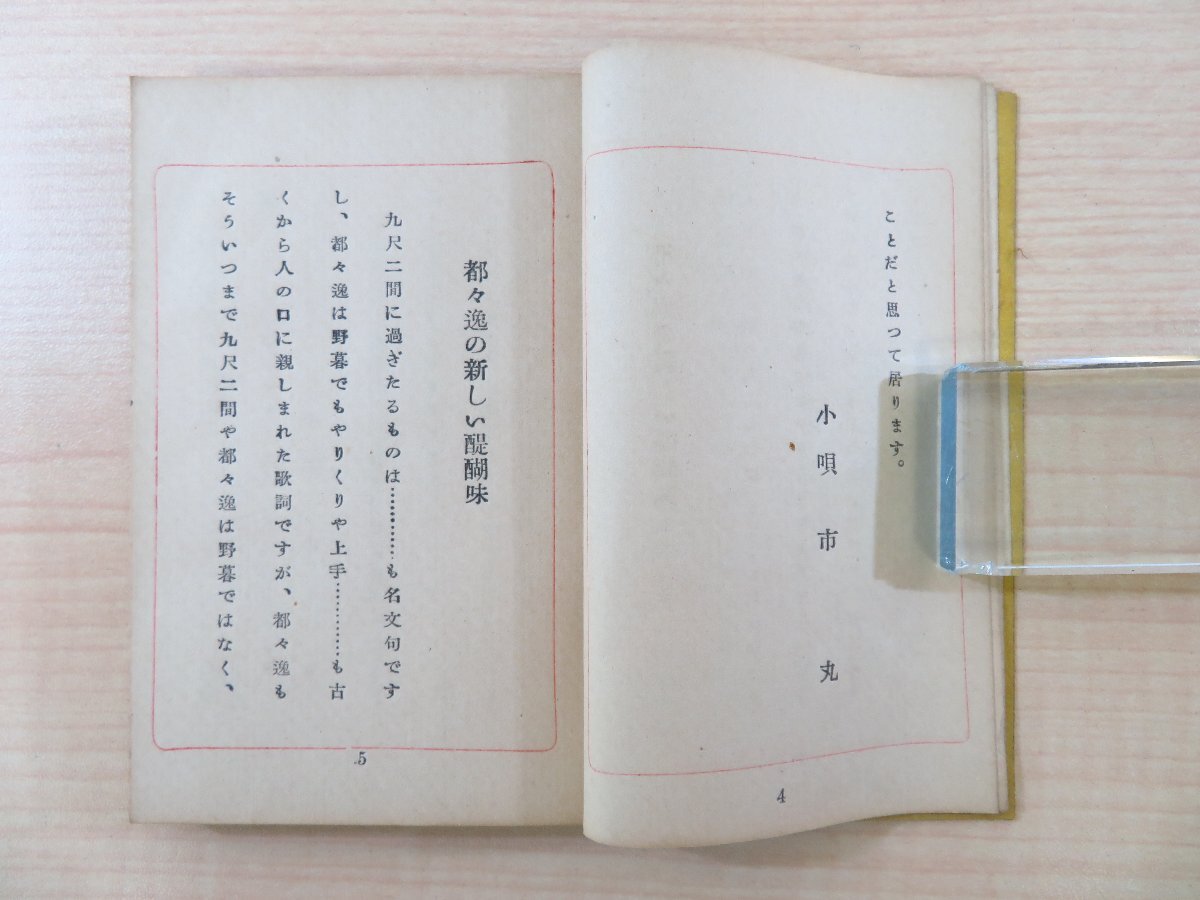 ことだと思つて居ります。
小唄市丸
4
都々逸の新しい醍醐味
九尺二間に過ぎたるものは…………も名文句です
し、都々逸は野暮でもやりくりや上手…………も古
くから人の口に親しまれた歌詞ですが、都々逸も
そういつまで九尺二間や都々逸は野暮ではなく、
5